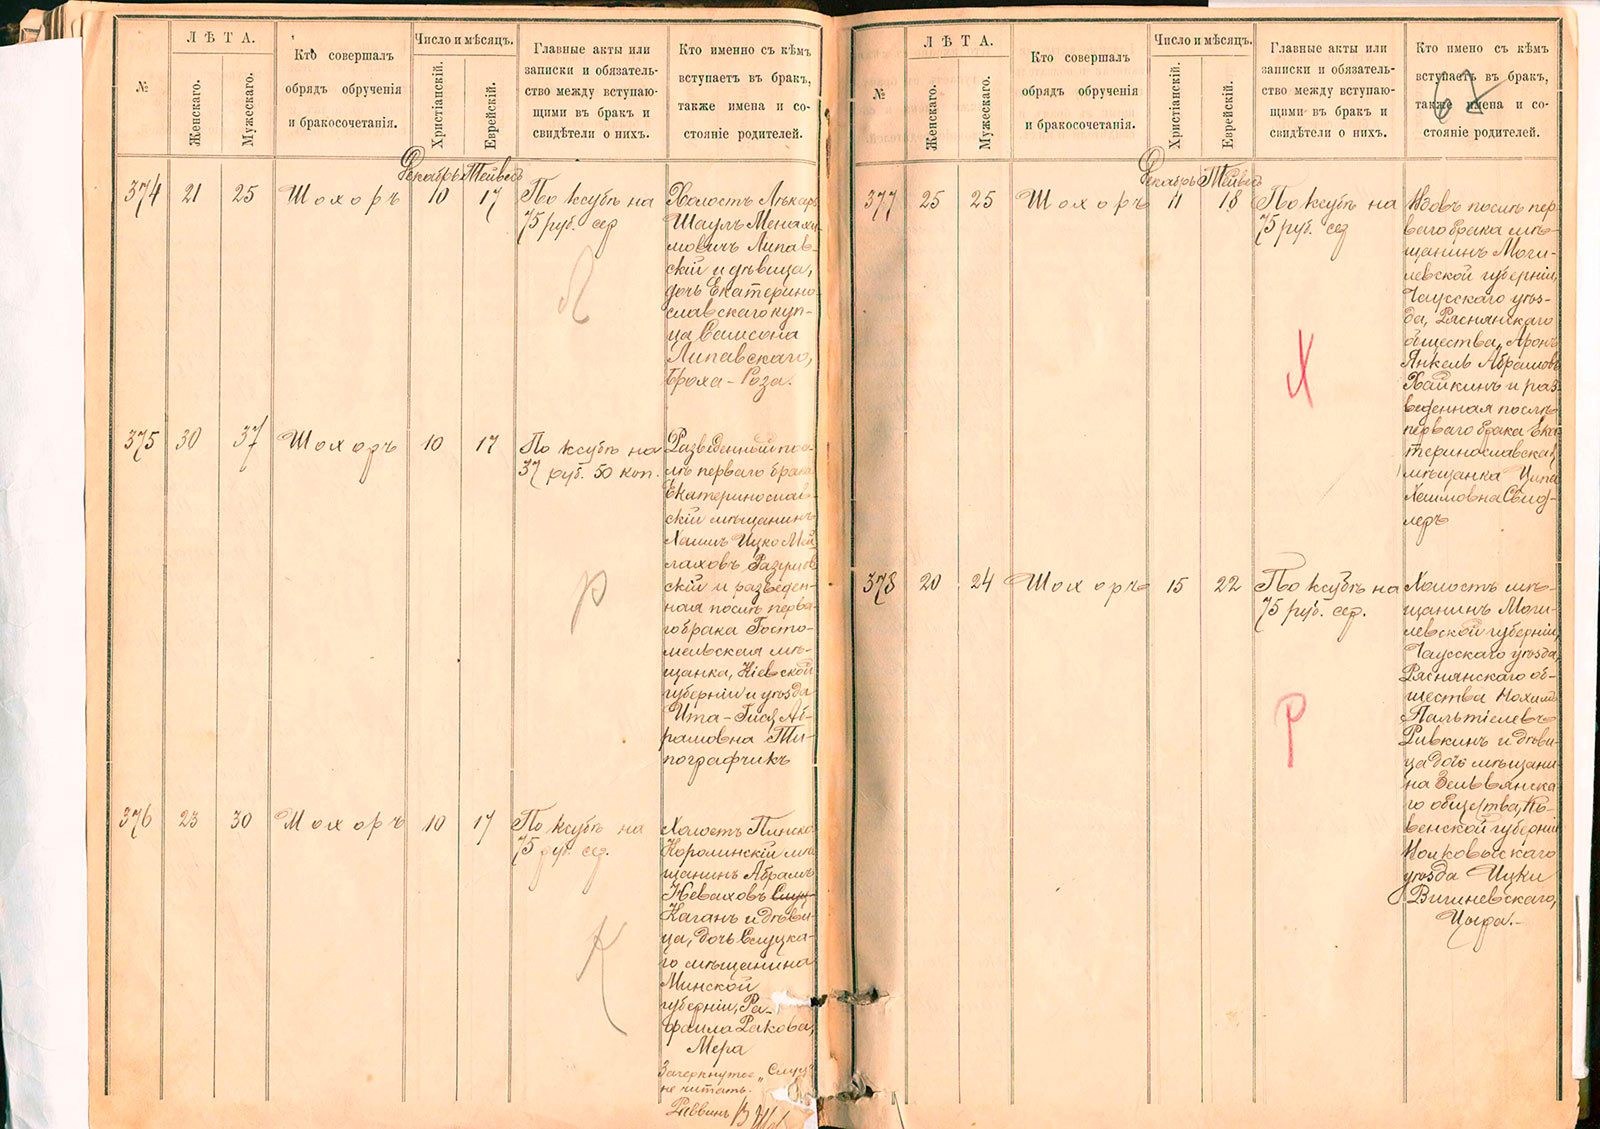 №
ЛѢТА.
Женскаго.
Мужескаго.
Кто совершалъ
обрядъ обрученія
и бракосочетанія.
Число и мѣсяцъ.
Христіанскій.
Еврейскій.
Главные акты или
записки и обязатель-
ство между вступаю-
щими въ бракъ и
свидѣтели о нихъ.
Кто именно съ кѣмъ
вступаетъ въ бракъ,
также имена и со-
стояніе родителей.
Декабрь Тейвесъ
374 21 25 Шохоръ 10 17
По ксубѣ на
75 руб. сер
Холостъ Лѣкарь
Шаулъ Менахи-
мовичъ Липав-
скій и дѣвица,
дочь Екатерино-
славскаго куп-
ца Самсона
Липавскаго,
Броха-Роза.
Л
375 30 37 Шохоръ 10 17
По ксубѣ на
37 руб. 50 коп.
Разведенный пос-
лѣ перваго брака
Екатеринослав-
скій мѣщанинъ
Хаимъ Ицко Мей-
лаховъ Разумов
скій и разведен-
ная послѣ перва-
го брака Госто-
мельская мѣ-
щанка, Кіевской
губерніи и уѣзда
Ита-Гися Аб-
рамовна Ти-
пографчикъ
Р
376 23 30 Шохоръ 10 17
По ксубѣ на
75 руб. сер.
Холостъ Пинско
Королинскій мѣ
щанинъ Абрамъ
Неваховъ Слуц-
Каганъ и дѣви-
ца, дочь Слуцка-
го мѣщанина
Минской
губерніи, Ра-
фаила Ракова,
Мера
К
Зачеркнутое „Слуц“
не читать.
Раввинъ
№
ЛѢТА.
Женскаго.
Мужескаго.
Кто совершалъ
обрядъ обрученія
и бракосочетанія.
Число и мѣсяцъ.
Христіанскій.
Еврейскій.
Главные акты или
записки и обязатель-
ство между вступаю-
щими въ бракъ и
свидѣтели о нихъ.
Кто имено съ кѣмъ
вступаетъ въ бракъ,
также имена и со-
стояніе родителей.
Декабрь Тейвесъ
377 25 25 Шохоръ 11 18
По ксубѣ на
75 руб. сер
Вдовъ послѣ пер
ваго брака мѣ-
щанинъ Моги-
левской губерніи,
Чаусского уѣз-
да, Ряснянскаго
общества, Аронъ
Янкель Абрамовъ
Хайкинъ и раз
веденная послѣ
перваго брака Ека
теринославская
мѣщанка Ципа
Хаимовна Свид-
леръ
Х
378 20 24 Шохоръ 15 22
По ксубѣ на
75 руб. сер.
Холостъ мѣ-
щанинъ Моги-
левской губерніи,
Чаусскаго уѣзда,
Ряснянскаго об-
щества Нохимъ
Пальтіелевъ
Ривкинъ и дѣви-
ца дочь мѣщани
на Зельвянска
го общества, Ко-
венской губерніи
Волковыскаго
уѣзда Ицки
Вишневскаго,
Цыра.-
Р